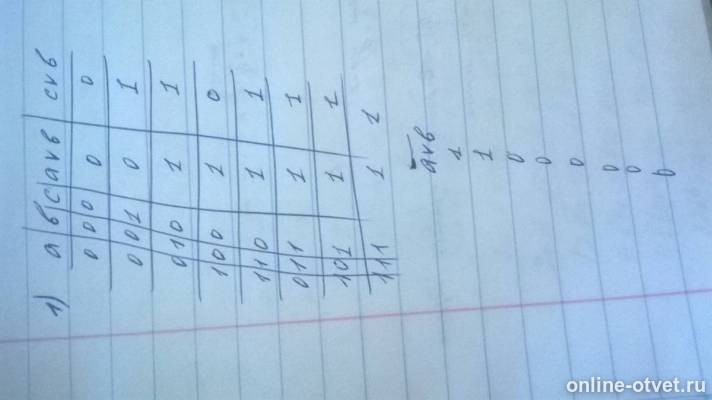 1)
a b c avb cvb
0 0 0 0 0
0 0 1 0 1
0 1 0 1 1
1 0 0 1 0
1 1 0 1 1
0 1 1 1 1
1 0 1 1 1
1 1 1 1 1
avb
1
1
0
0
0
0
0
0
online-otvet.ru